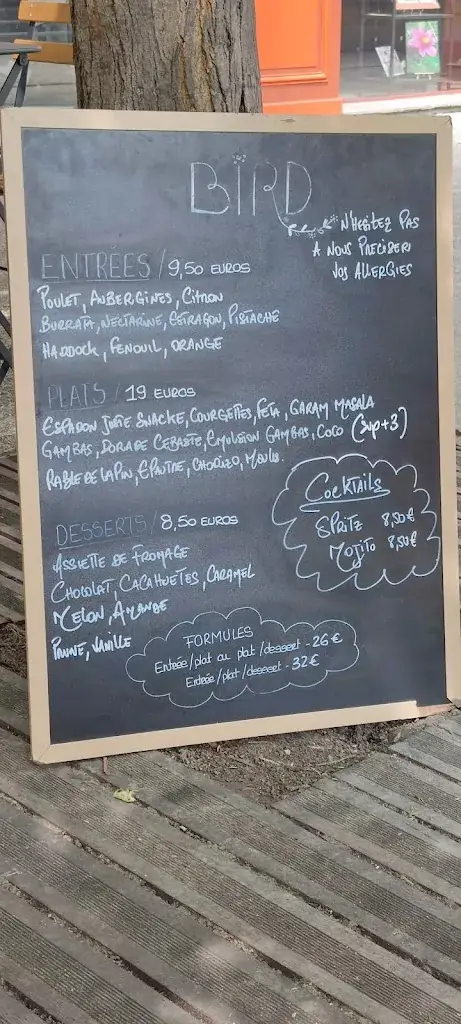 BIRD
N'HESITEZ PAS
A NOUS PRECISER
VOS ALLERGIES
ENTRÉES / 9,50 EUROS
POULET, AUBERGINES, CITRON
BURRATA, NECTARINE, ESTRAGON, PISTACHE
HADDOCK, FENOUIL, ORANGE
PLATS / 19 EUROS
ESPADON JUSTE SNACKE, COURGETTES, FETA, GARAM MASALA
GAMBAS, DORADE CEBASTE, EMULSION GAMBAS, COCO (sup+3)
RABLE DE LAPIN, EPAUTRE, CHORIZO, MOULES
COCKTAILS
SPRITZ 8,50€
MOJITO 8,50€
DESSERTS / 8,50 EUROS
ASSIETTE DE FROMAGE
CHOCOLAT, CACAHUETES, CARAMEL
MELON, AMANDE
PRUNE, VANILLE
FORMULES
Entrée/plat ou plat/dessert - 26€
Entrée/plat/dessert - 32€